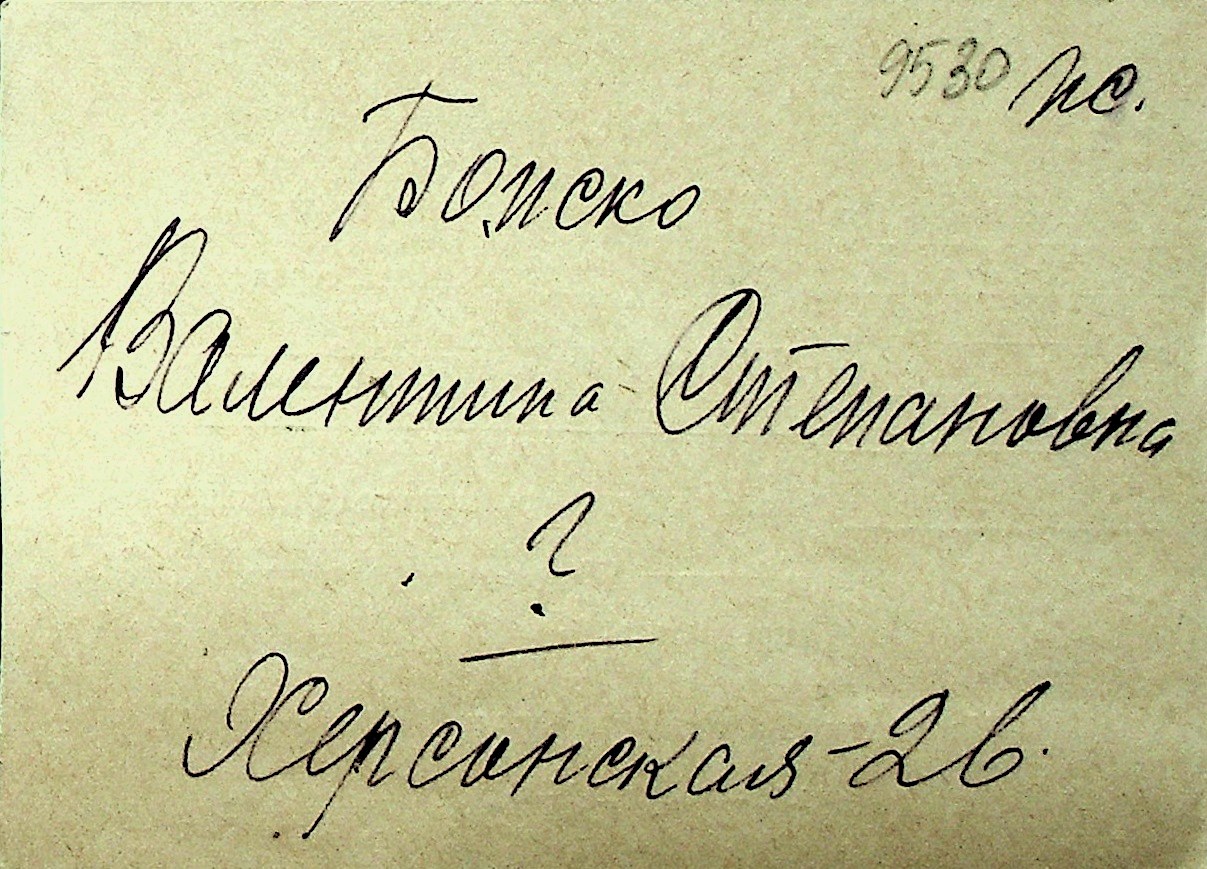 9530 пс.
Бомско
Валентина Степановна
?
Херсонская-26.